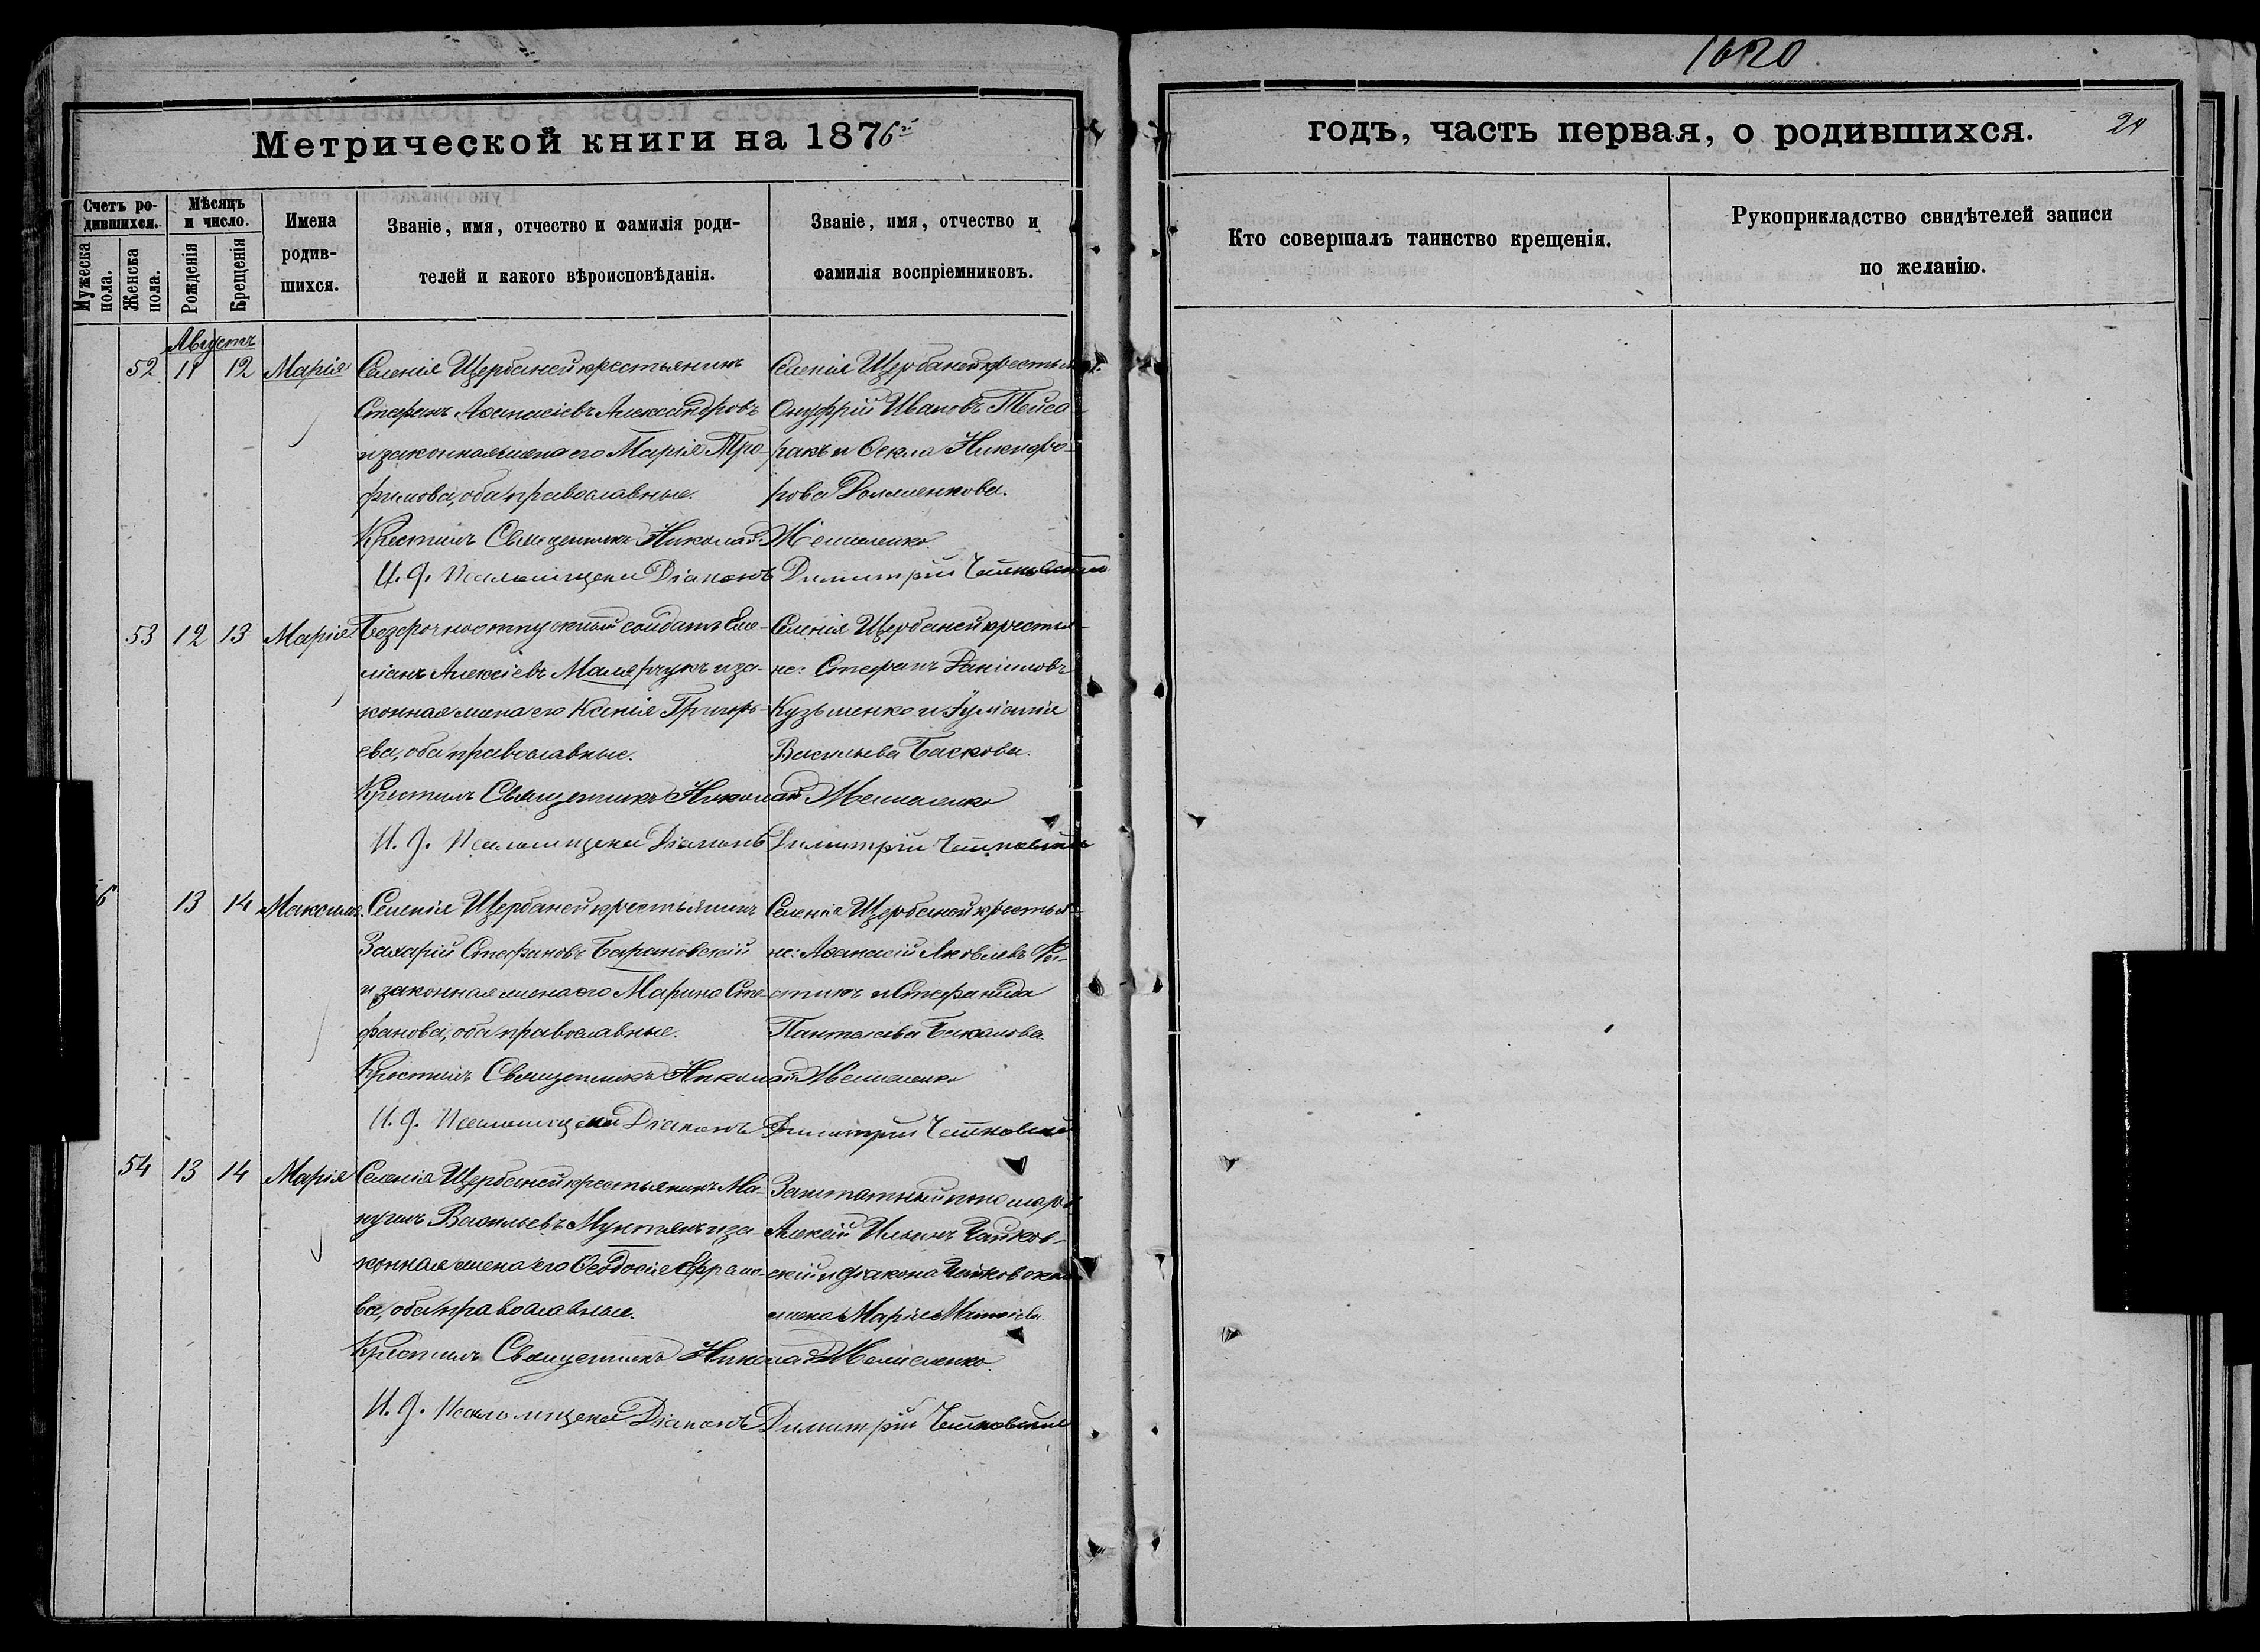 1020
Метрической книги на 1876й
годъ, часть первая, о родившихся.
24
Счетъ ро-
дившихся.
Мѣсяцъ
и число.
Мужеска
пола.
Женска
пола.
Рожденія
Крещенія
Имена
родив-
шихся.
Званіе, имя, отчество и фамилія роди-
телей и какого вѣроисповѣданія.
Званіе, имя, отчество и
фамилія воспріемниковъ.
Кто совершалъ таинство крещенія.
Рукоприкладство свидѣтелей записи
по желанію.
Августъ
52 11 12 Марія Селенія Щербаней крестьянинъ
Стефанъ Аѳанасіевъ Александровъ
и законная жена его Марія Тро-
фимова, оба православные.
Селенія Щербаней крестья-
Онуфрій Ивановъ
и Ѳекла Никифо-
рова
Крестилъ Священникъ Николай
И. д. Псаломщика Діаконъ Димитрій Чайковскій
53 12 13 Марія Безсрочноотпускной солдатъ Еме-
ліанъ Алексіевъ Малярчукъ и за-
конная жена его Ксенія Григорь-
ева, оба православные.
Селенія Щербаней крестья-
не: Стефанъ Даніиловъ
Кузьменко и Іуліанія
Васильева Баскова.
Крестилъ Священникъ Николай
И. д. Псаломщика Діаконъ Димитрій Чайковскій
6 13 14 Максимъ Селенія Щербаней крестьянинъ
Захарій Стефановъ Барановскій
и законная жена его Марина Сте-
фанова, оба православные.
Селенія Щербаней крестья-
не: Аѳанасій Яковлевъ
и Стефанида
Пантелеева Бакалова.
Крестилъ Священникъ Николай
И. д. Псаломщика Діаконъ Димитрій Чайковскій
54 13 14 Марія Селенія Щербаней крестьянинъ Ма-
Васильевъ Мунтянъ и за-
конная жена его Ѳеодосія Ефремо-
ва, оба православные.
Заштатный пономарь
Алексій Ильинъ Чайков-
скій и діакона Чайковскаго
жена Марія Матвіева
Крестилъ Священникъ Николай
И. д. Псаломщика Діаконъ Димитрій Чайковскій